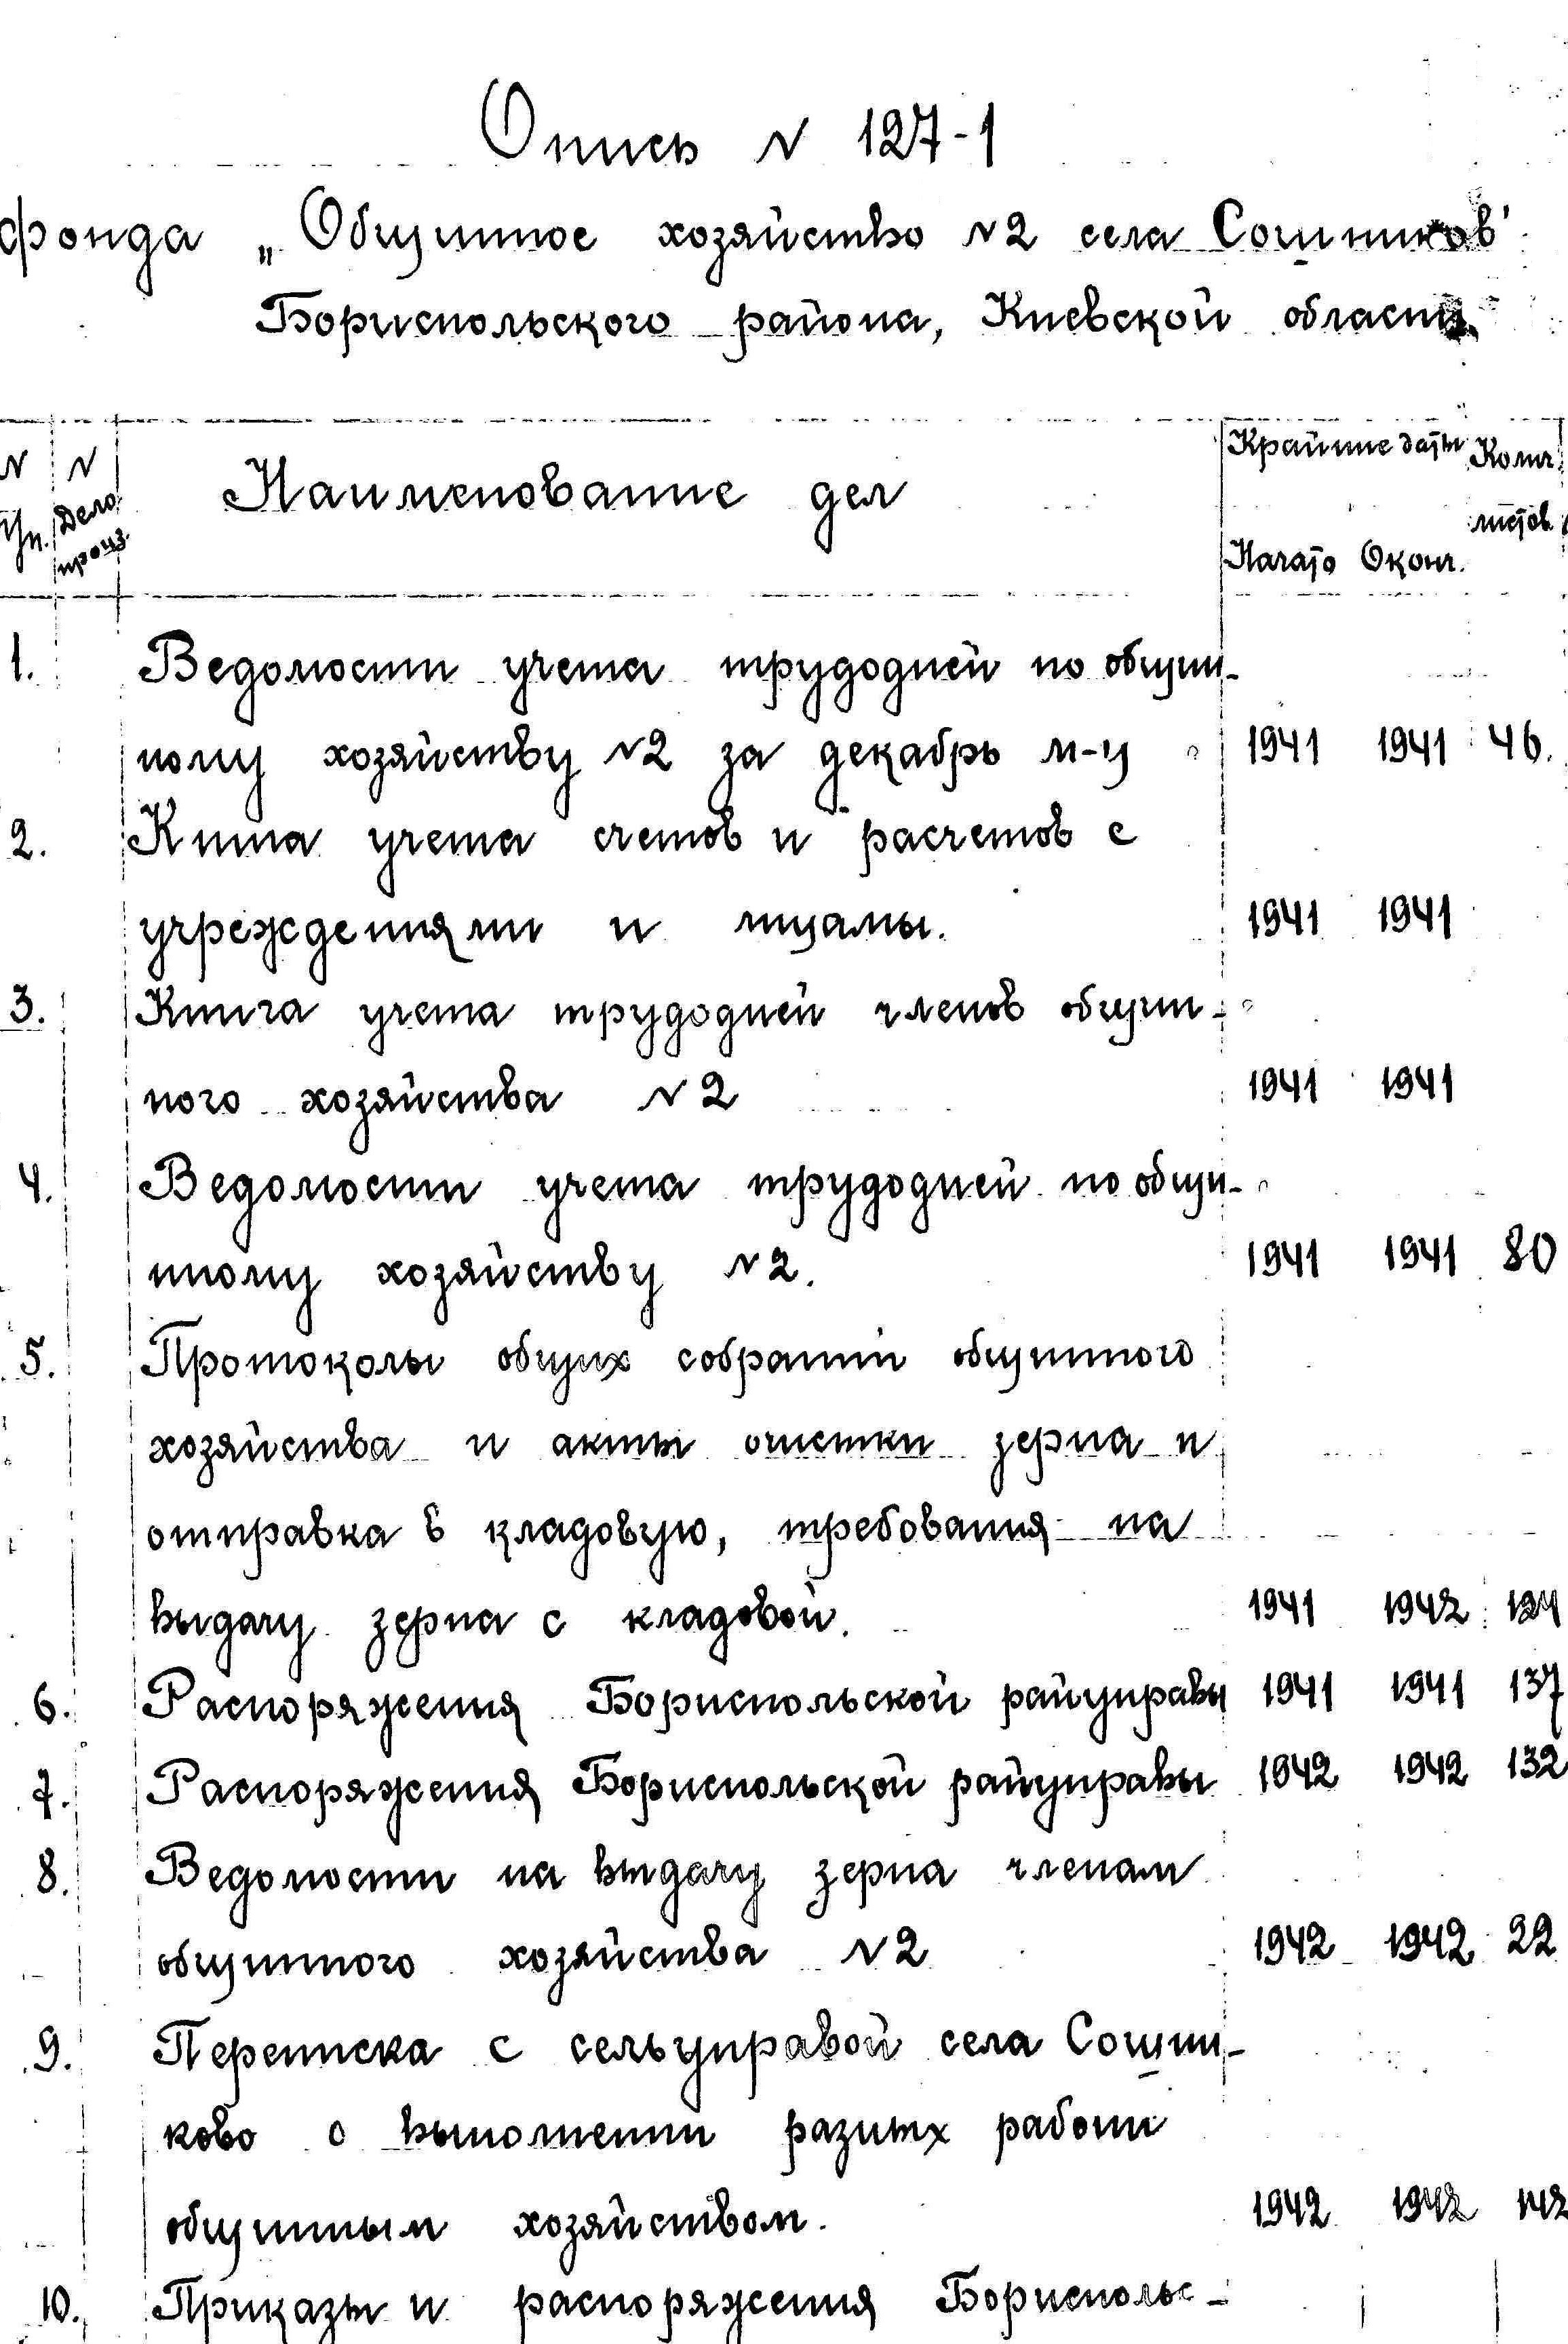 Опись N 127-1
фонда „Общинное хозяйство N2 села Сошников"
Бориспольского района, Киевской области.
N N Наименование дел Крайние даты Колич.
Дело произ. листов
Начато Оконч.
1. Ведомости учета трудодней по общин-
ному хозяйству N2 за декабрь м-ц 1941 1941 46.
2. Книга учета счетов и расчетов с
учреждениями и лицамы. 1941 1941
3. Книга учета трудодней членов общин-
ного хозяйства N2 1941 1941
4. Ведомости учета трудодней по общи-
нному хозяйству N2. 1941 1941 80
5. Протоколы общих собраний общинного
хозяйства и акты очистки зерна и
отправка в кладовую, требования на
выдачу зерна с кладовой. 1941 1942 124
6. Распоряжения Бориспольской райуправы 1941 1941 137
7. Распоряжения Бориспольской райуправы 1942 1942 132
8. Ведомости на выдачу зерна членам
общинного хозяйства N2 1942 1942 22
9. Переписка с сельуправой села Сошни-
ково о выполнении разных работ
общинным хозяйством. 1942 1942 142
10. Приказы и распоряжения Борисполъс-